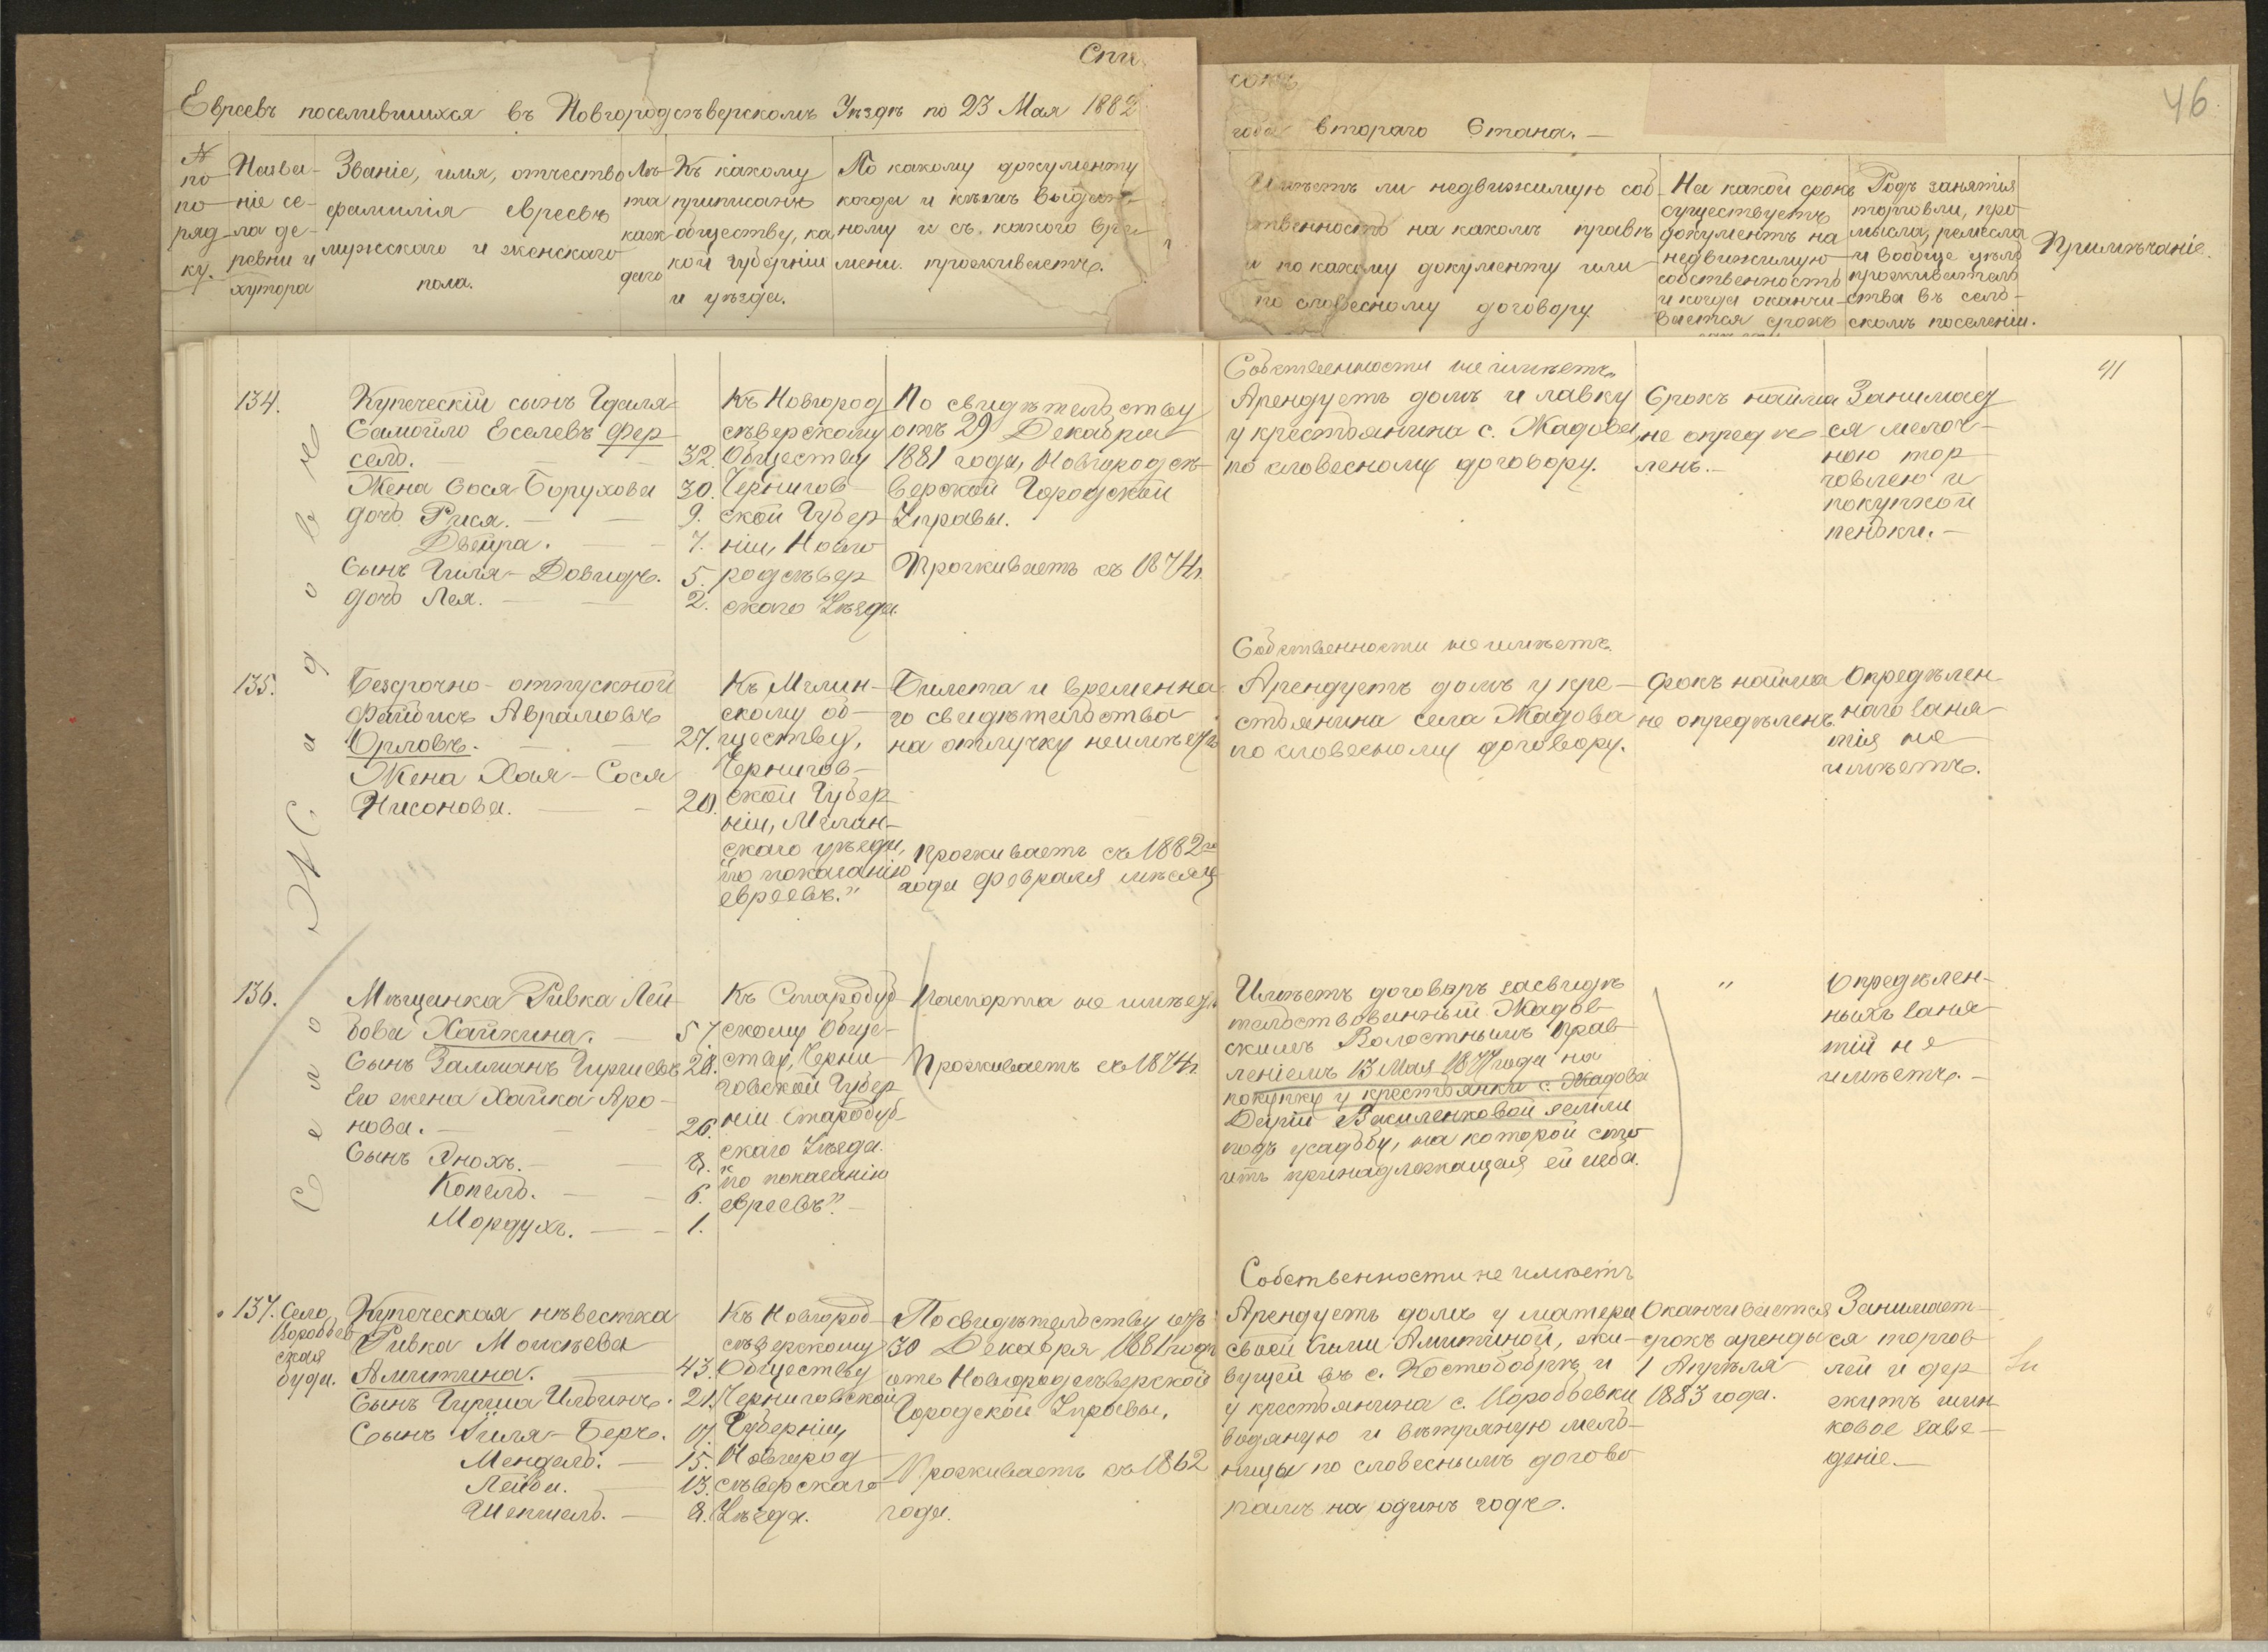 Спи
сокъ
46.
Евреевъ поселившихся въ Новгородсѣверскомъ Уѣздѣ по 23 Мая 1882
года втораго Стана.—
№
по
по
ряд
ку.
Назва-
ніе се-
ла де-
ревни и
хутора
Званіе, имя, отчество
фамилія евреевъ
мужскаго и женскаго
пола.
Лѣ-
та
каж
даго
Къ какому
приписанъ
обществу, ка
кой губерніи
и уѣзда.
По какому документу
когда и кѣмъ выдан-
ному и съ какого вре-
мени проживаетъ.
Имѣетъ ли недвижимую соб-
ственность на какомъ правѣ
и по какому документу или
по словесному договору
На какой срокъ
существуетъ
документъ на
недвижимую
собственность
и когда оканчи-
вается срокъ
Родъ занятія
торговли, про
мысла, ремесла
и вообще цѣль
прожиратель
ства въ сель-
скомъ поселеніи.
Примѣчаніе.
91
Село Жадово
134.
Купеческій сынъ Гдаля-
Самойло Еселевъ Фер
сель. — 32.
Жена Сося Борухова 30.
дочь Рися. — 9.
Двейра. — 7.
Сынъ Гиля-Довидъ. 5.
дочь Лея. — 2.
Къ Новгород
сѣверскому
Обществу
Чернигов-
ской Губер
ніи, Новго
родсѣвер
скаго Уѣзда.
По свидѣтельству
отъ 29 Декабря
1881 года, Новгородсѣ-
верской Городской
Управы.
Проживаетъ съ 1874 г.
Собственности не имѣетъ.
Арендуетъ домъ и лавку
у крестьянина с. Жадова,
по словесному договору.
Срокъ найма
не опредѣ
ленъ.—
Занимает
ся мелоч-
ною тор
говлею и
покупкой
пеньки.—
135.
Безсрочно-отпускной
Файбисъ Аврамовъ
Орловъ. — 27.
Жена Хая-Сося
Нисонова. — 20.
Къ Мглин-
скому об-
ществу,
Чернигов-
ской Губер
ніи, Мглин-
скаго уѣзда,
"по показанію
евреевъ."
Билета и временна-
го свидѣтельства
на отлучку неимѣетъ
Проживаетъ съ 1882 го
года Февраля мѣсяц
Собственности не имѣетъ.
Арендуетъ домъ у кре-
стьянина села Жадова
по словесному договору.
Срокъ найма
не опредѣленъ
Опредѣлен
наго заня
тія не
имѣетъ.
136.
Мѣщанка Ривка Лей
бова Хайкина. — 57.
Сынъ Залманъ Гиршевъ 28.
Его жена Хайка Аро-
нова. — 26.
Сынъ Энохъ. — 8.
Копель. — 6.
Мордухъ. — 1.
Къ Стародуб
скому Обще-
ству, Черни
говской Губер
ніи Стародуб-
скаго Уѣзда.
"по показанію
евреевъ".—
Паспорта не имѣетъ
Проживаетъ съ 1874 г.
Имѣетъ договоръ засвидѣ
тельствованный Жадов-
скимъ Волостнымъ Прав
леніемъ 13 Мая 1877 года на
покупку у крестьянки с. Жадова
Дарьи Василенковой земли
подъ усадьбу, на которой сто
итъ принадлежащая ей изба.
"
Опредѣлен-
ныхъ заня-
тій не
имѣетъ.—
137.
Село
Воробьев
ская
буда.
Купеческая невѣстка
Ривка Мошкева
Амитина. — 43.
Сынъ Гирша Ильинъ. 21.
Сынъ Гиля-Беръ. 17.
Мендель. — 15.
Лейба. 13.
Шепшель. — 8.
Къ Новгород-
сѣверскому
Обществу
Черниговской
Губерніи
Новгород
сѣверскаго
Уѣзда.
По свидѣтельству отъ
30 Декабря 1881 года
отъ Новгородсѣверской
Городской Управы.
Проживаетъ съ 1862
года.
Собственности не имѣетъ
Арендуетъ домъ у матери
своей Симы Амитиной, жи-
вущей въ с. Костобобрѣ и
у крестьянина с. Воробьевки
водяную и вѣтряную мель-
ницы по словеснымъ догово
рамъ на одинъ годъ.
Оканчивается
срокъ аренды
1 Апрѣля
1883 года.
Занимает-
ся торгов
лей и дер
житъ шин
ковое заве-
деніе.—